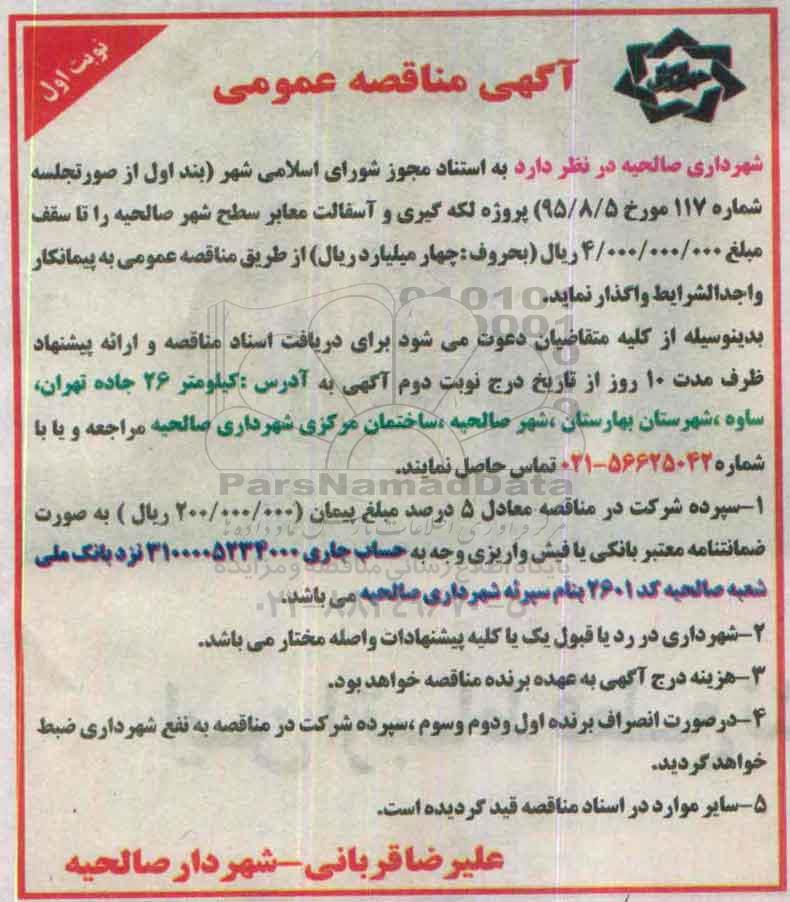 نوبت اول
آگهی مناقصه عمومی
شهرداری صالحیه در نظر دارد به استناد مجوز شورای اسلامی شهر (بند اول از صورتجلسه
شماره ۱۱۷ مورخ ۹۵/۸/۵) پروژه لکه گیری و آسفالت معابر سطح شهر صالحیه را تا سقف
مبلغ ۴/۰۰۰/۰۰۰/۰۰۰ ریال (بحروف :چهار میلیارد ریال) از طریق مناقصه عمومی به پیمانکار
واجدالشرایط واگذار نماید.
بدینوسیله از کلیه متقاضیان دعوت می شود برای دریافت اسناد مناقصه و ارائه پیشنهاد
ظرف مدت ۱۰ روز از تاریخ درج نوبت دوم آگهی به آدرس :کیلومتر ۲۶ جاده تهران،
ساوه ،شهرستان بهارستان ،شهر صالحیه ،ساختمان مرکزی شهرداری صالحیه مراجعه و یا با
شماره ۵۶۶۲۵۰۴۲-۰۲۱ تماس حاصل نمایند.
ParsNamadData
۱-سپرده شرکت در مناقصه معادل ۵ درصد مبلغ پیمان (۲۰۰/۰۰۰/۰۰۰ ریال ) به صورت
ضمانتنامه معتبر بانکی یا فیش واریزی وجه به حساب جاری ۳۱۰۰۰۰۵۲۳۴۰۰۰ نزد بانک ملی
پایگاه اطلاع رسانی مناقصه و مزایده
شعبه صالحیه کد ۲۶۰۱ بنام سپرده شهرداری صالحیه می باشد.
۲-شهرداری در رد یا قبول یک یا کلیه پیشنهادات واصله مختار می باشد.
۳-هزینه درج آگهی به عهده برنده مناقصه خواهد بود.
۴-درصورت انصراف برنده اول ودوم وسوم ،سپرده شرکت در مناقصه به نفع شهرداری ضبط
خواهد گردید.
۵-سایر موارد در اسناد مناقصه قید گردیده است.
علیرضا قربانی-شهردار صالحیه